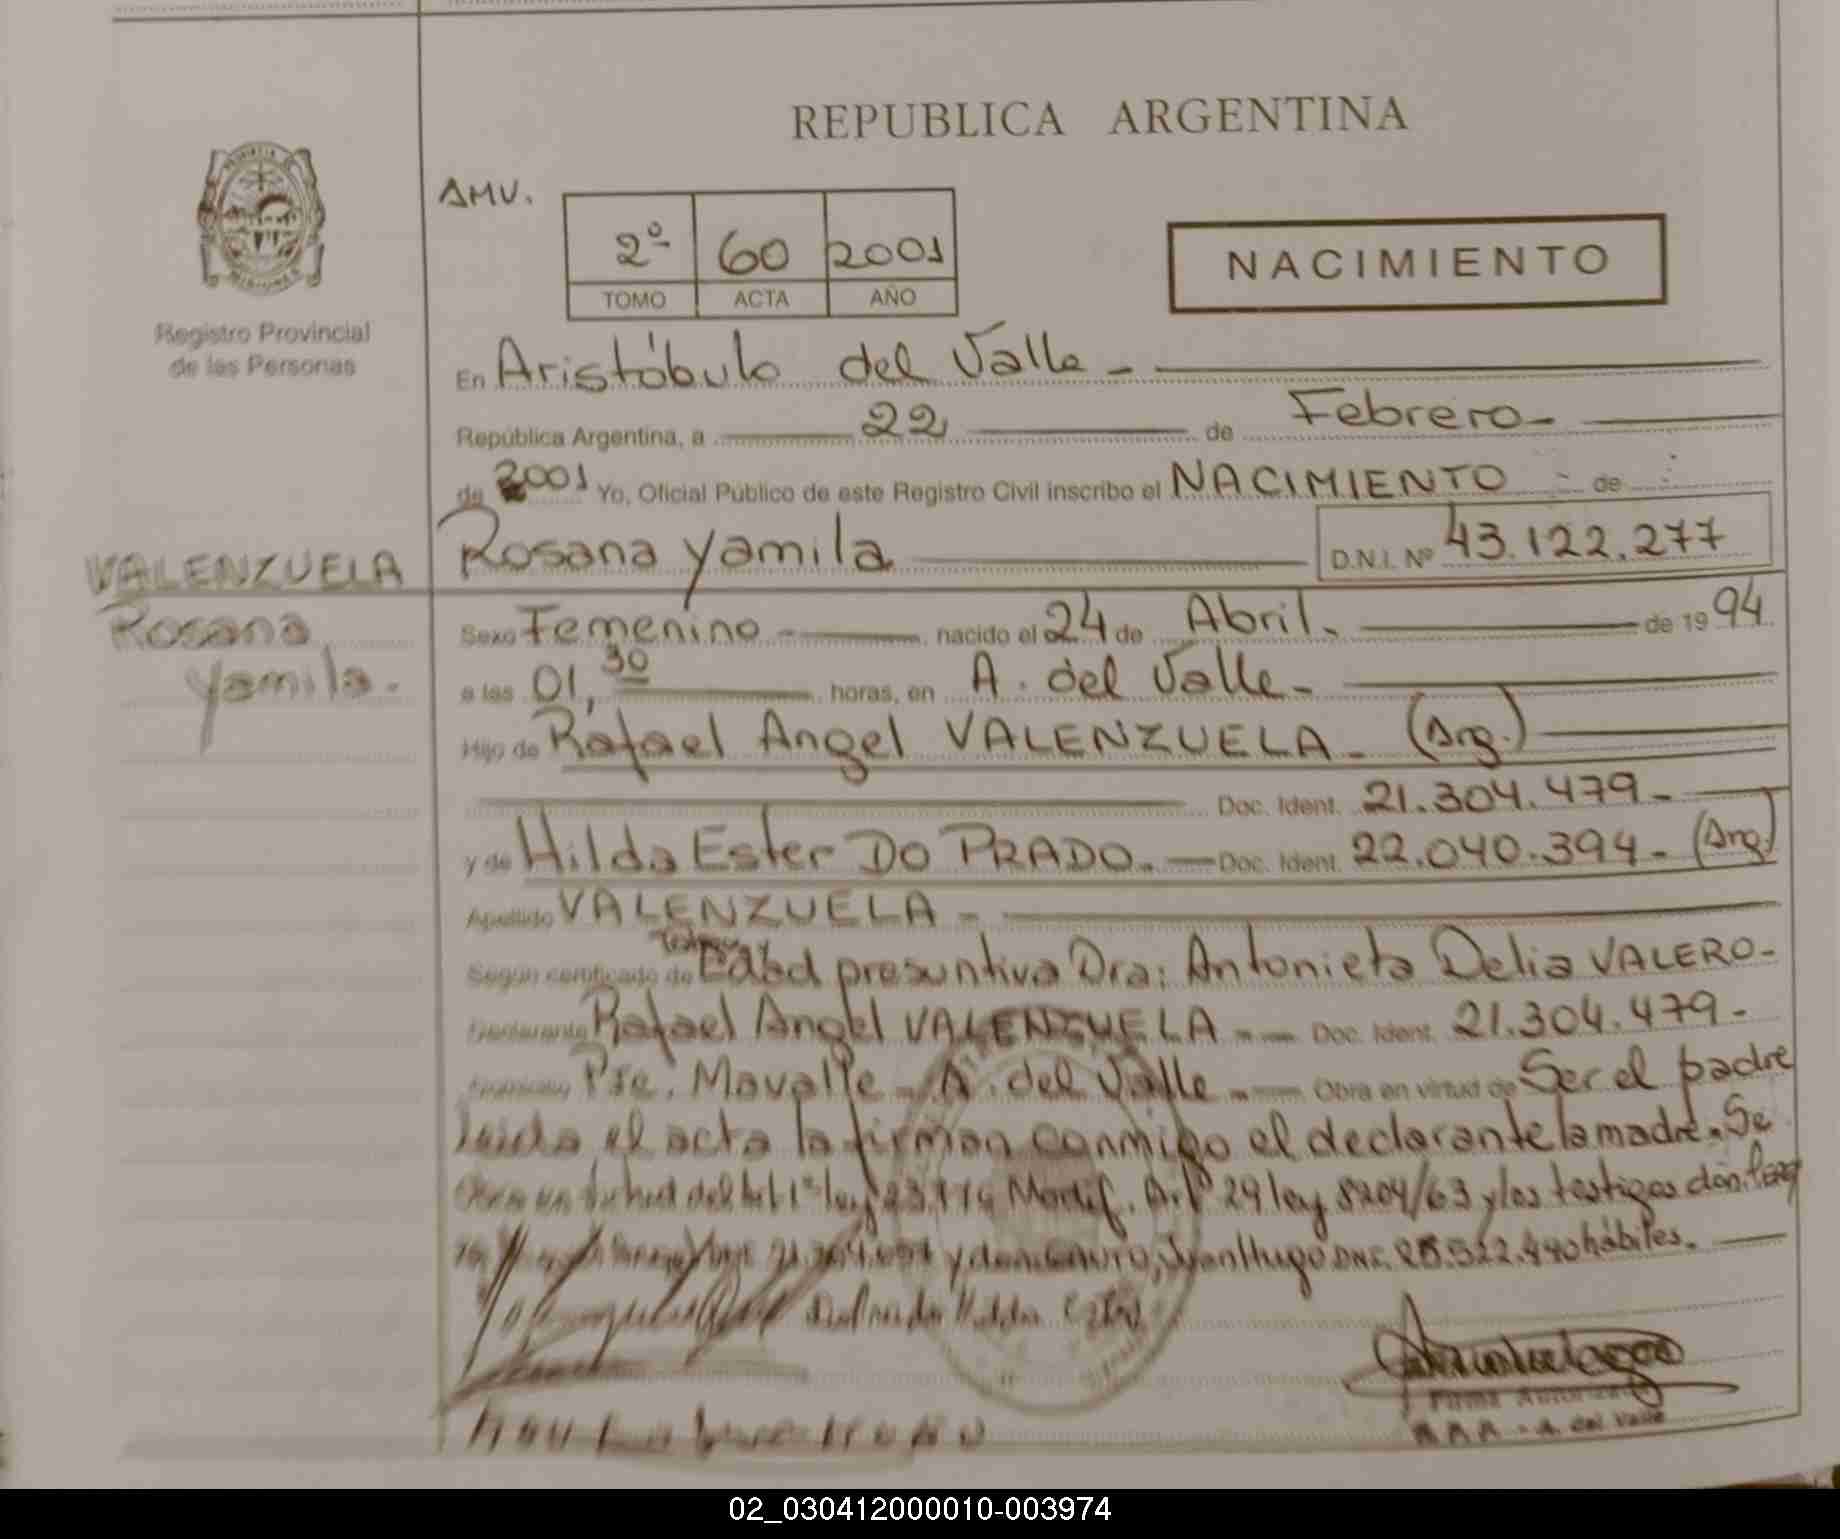 REPUBLICA ARGENTINA
AMV.
2º 60 2001
TOMO ACTA AÑO
NACIMIENTO
PROVINCIA DE
MISIONES
Registro Provincial
de las Personas
En Aristóbulo del Valle -
República Argentina, a 22 de Febrero -
de 2001 Yo, Oficial Público de este Registro Civil inscribo el NACIMIENTO de
VALENZUELA
Rosana
Yamila.
Rosana Yamila D.N.I. Nº 43.122.277
Sexo Femenino - nacido el 24 de Abril. de 1994
a las 01,30 horas, en A. del Valle -
Hijo de Rafael Angel VALENZUELA - (Arg.)
Doc. Ident. 21.304.479 -
y de Hilda Ester DO PRADO. - Doc. Ident. 22.040.394 - (Arg.)
Apellido VALENZUELA -
Según certificado de Edad presuntiva Dra: Antonieta Delia VALERO -
Declarante Rafael Angel VALENZUELA - Doc. Ident. 21.304.479 -
Domicilio Pje. Mavalle - A. del Valle - Obra en virtud de Ser el padre
leida el acta la firman conmigo el declarante la madre. Se
Obra en virtud del Art 1º ley Modif. Art 29 ley 8204/63 y los testigos don
y don Juan Hugo DNI. hábiles. -
Firma Autorizada
A. del Valle
02_030412000010-003974